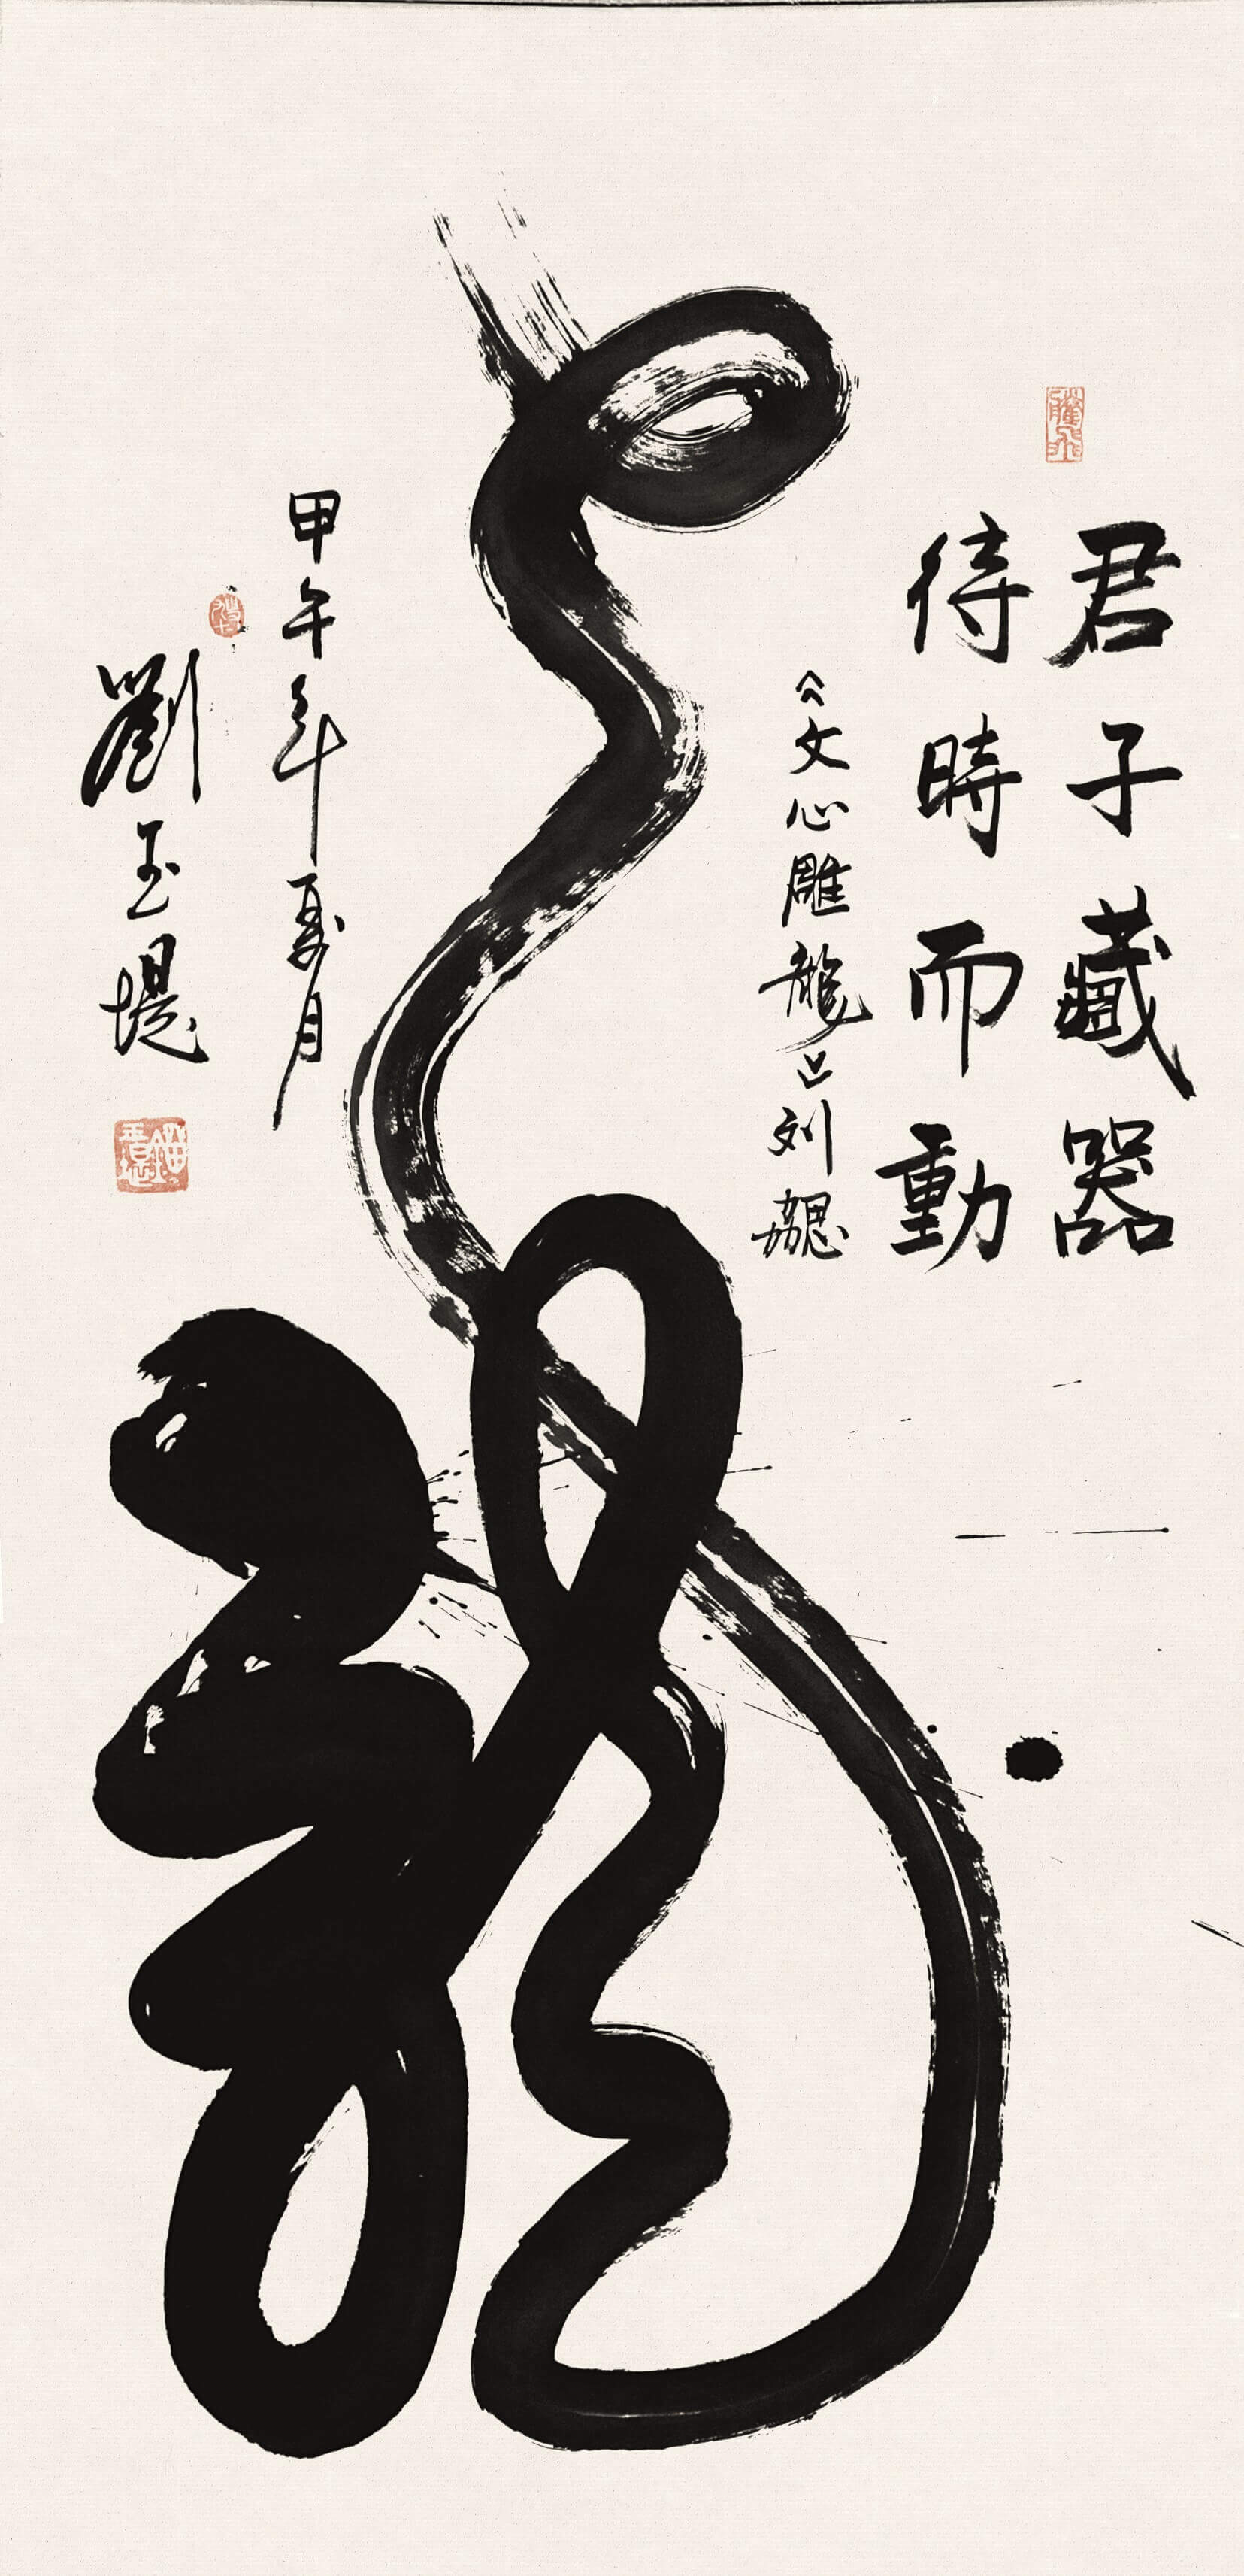 君子藏器
待時而動
《文心雕龍》刘勰
龍
甲午年夏月
劉玉堤